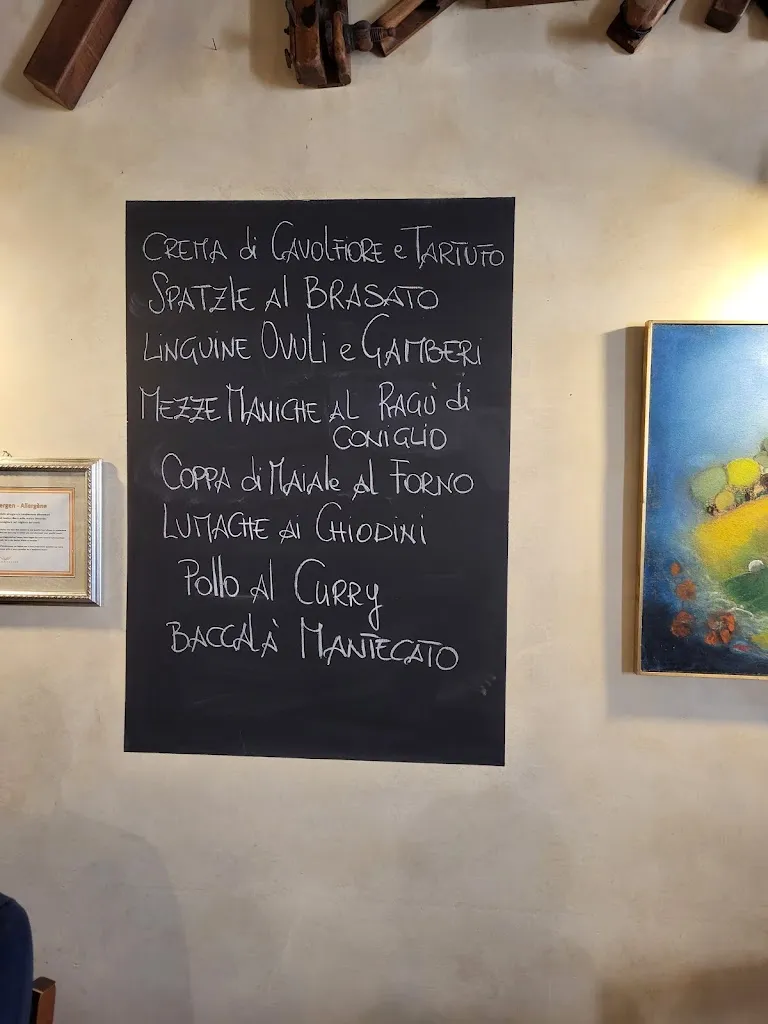 CREMA di CAVOLFIORE e TARTUFO
SPATZLE Al BRASATO
LINGUINE OVULI e GAMBERI
MEZZE MANICHE AL RAGÙ di
CONIGLIO
COPPA di MAIALE al FORNO
LUMACHE Ai CHIODINI
Pollo al CURRY
BACCALÀ MANTECATO
ergen - Allergène